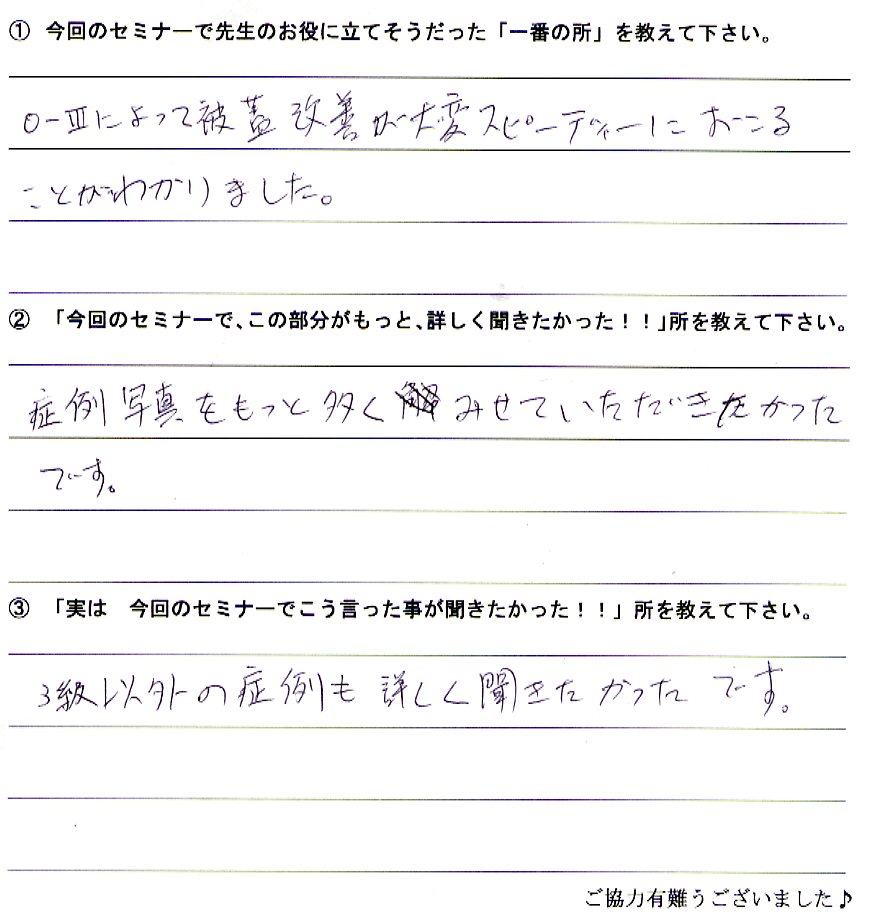 ① 今回のセミナーで先生のお役に立てそうだった「一番の所」を教えて下さい。
O-Ⅲによって被蓋改善が大変スピーディーにおこる
ことがわかりました。
② 「今回のセミナーで、この部分がもっと、詳しく聞きたかった！！」所を教えて下さい。
症例写真をもっと多くみせていただきたかった
です。
③ 「実は　今回のセミナーでこう言った事が聞きたかった！！」所を教えて下さい。
3級以外の症例も詳しく聞きたかったです。
ご協力有難うございました♪